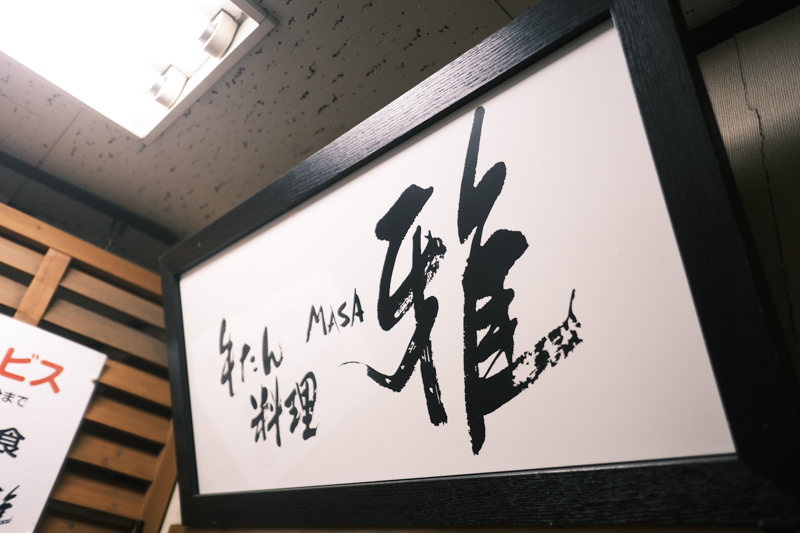 雅
MASA
牛たん
料理
ビス
まで
食